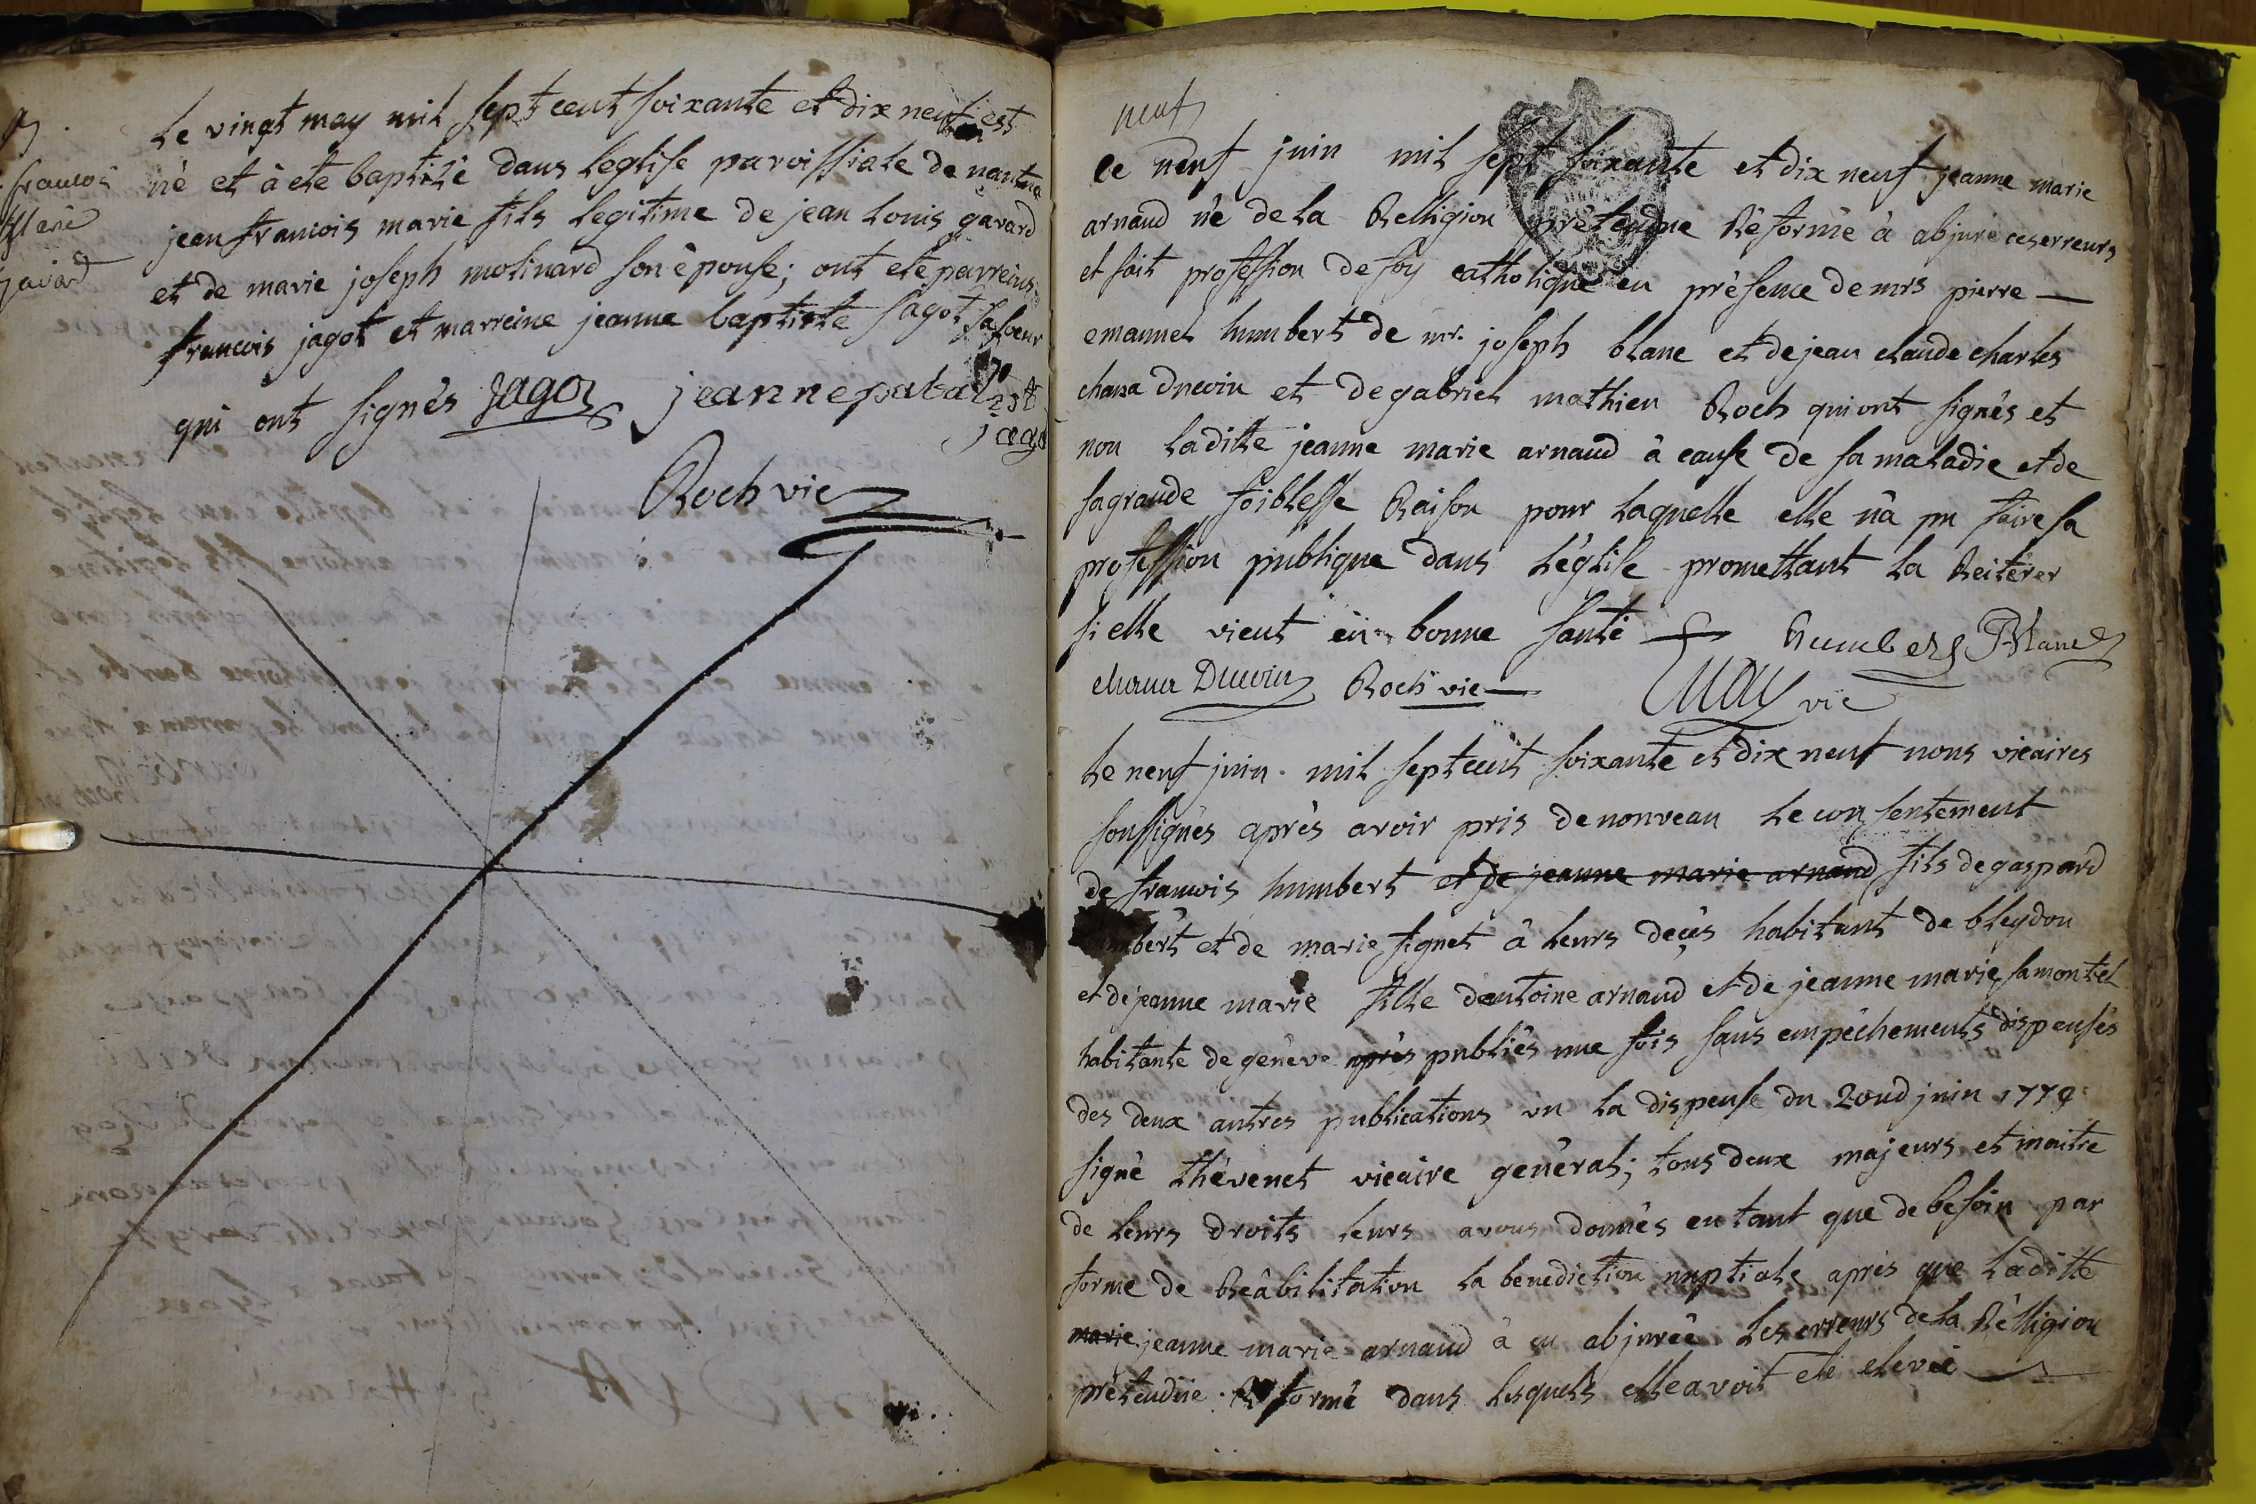 francois
Marie
gavard
Le vingt may mil sept cent soixante et dix neuf est
né et à eté baptisé dans leglise paroissiale de nantue
jean francois marie fils legitime de jean Louis gavard
et de marie joseph molinard son épouse; ont eté parreins
francois jagot et marreine jeanne baptiste jagot sa soeur
qui ont signés jagot jeanne
jago
Roch vic
neuf
Le neuf juin mil sept soixante et dix neuf jeanne marie
arnaud né de la Relligion prétendue Réformée à abjuré ces erreurs
et fait profession de foy catholique en présence de mrs pierre
emanuel humbert de mr. joseph blanc et de jean claude charles
chana Ducoin et de gabriel mathieu Roch qui ont signés et
non laditte jeanne marie arnaud à cause de sa maladie et de
sa grande foiblesse Raison pour laquelle elle n'à pu faire sa
profession publique dans l'église promettant la Reitérer
si elle vient en bonne santé humbert Blanc
chana Ducoin Roch vic vic
Le neuf juin mil sept cent soixante et dix neuf nous vicaires
soussignés après avoir pris de nouveau le consentement
de francois humbert et de jeanne marie arnaud fils de gaspard
humbert et de marie fignet à leurs déçes habitant de bleydon
et de jeanne marie fille dantoine arnaud et de jeanne marie samontel
habitante de genève après publiés une fois sans empêchements dispensés
des deux autres publications vu la dispense du 2ond juin 1779
signé thévenet vicaire général; tous deux majeurs et maitre
de leurs droits leurs avous donnés entant que de besoin par
forme de Reâbilitation la benediction nuptiale après que laditte
marie jeanne marie arnaud à eu abjurée les erreurs de la Rélligion
prétendüe Réformé dans lesquels elle avoit eté elevée